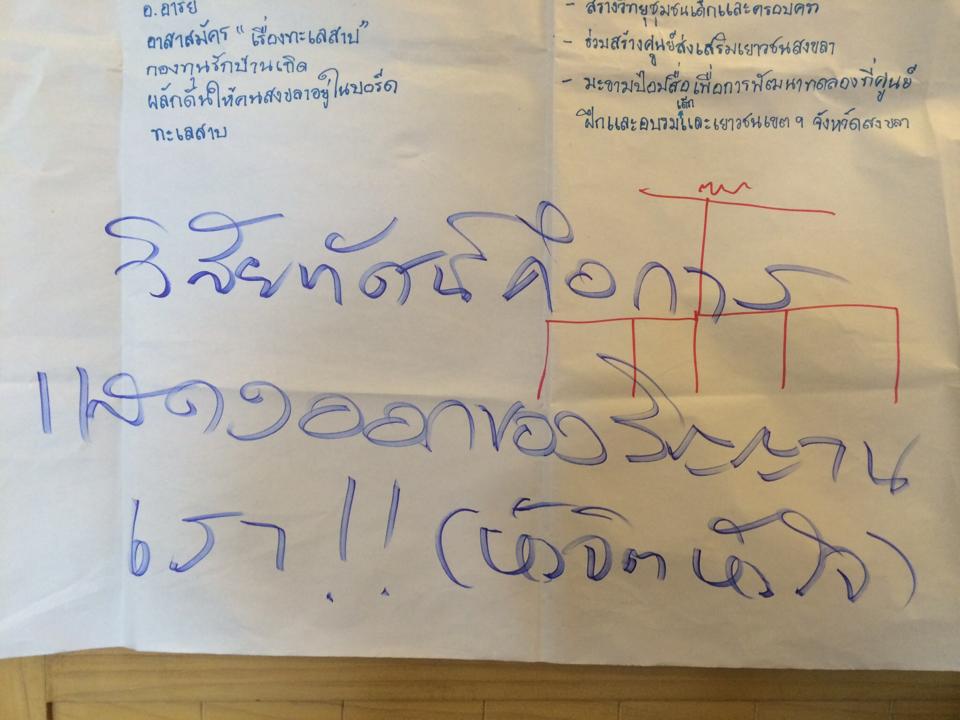 อ.อารย์
อาสาสมัคร "เรื่องทะเลสาบ"
กองทุนรักบ้านเกิด
ผลักดันให้คนสงขลาอยู่ในบอร์ด
ทะเลสาบ
- สร้างวิทยุชุมชนเด็กและครอบครัว
- ร่วมสร้างศูนย์ส่งเสริมเยาวชนสงขลา
- มะขามป้อมสื่อเพื่อการพัฒนาทดลองที่ศูนย์
ฝึกและอบรมเด็กและเยาวชนเขต ๆ จังหวัดสงขลา
วิสัยทัศน์คือการ
แสดงออกของวิญญาน
เรา!! (หัวจิตหัวใจ)